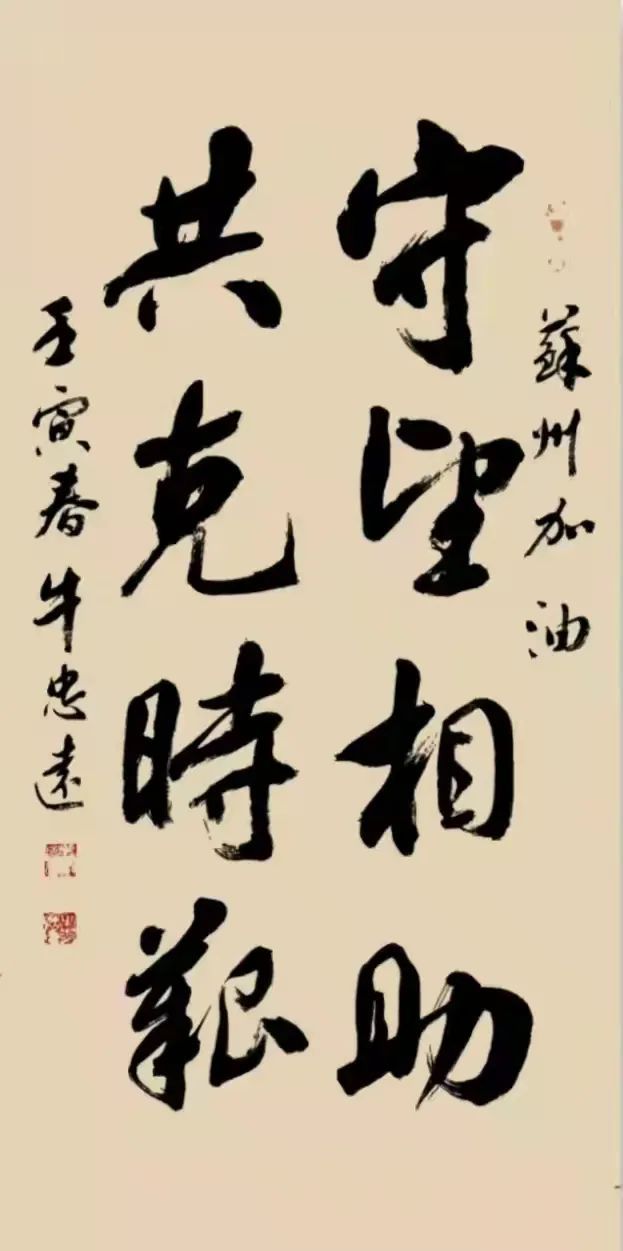 蘇州加油
守望相助
共克時艱
壬寅春牛忠遠